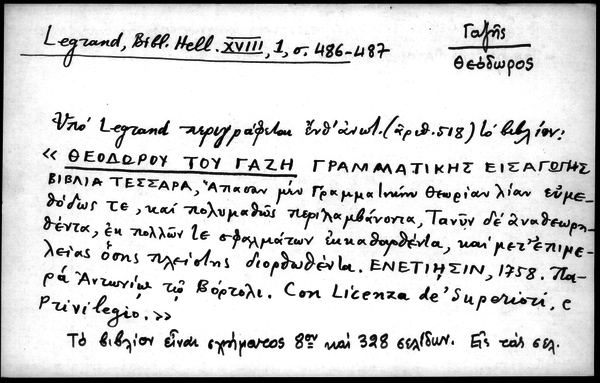 Legrand, Bibl. Hell. XVIII, 1, σ. 486-487
Γαζῆς
Θεόδωρος
Ὑπὸ Legrand περιγράφεται ἔνθ' ἀνωτ. (ἀριθ. 518) τὸ βιβλίον:
« ΘΕΟΔΩΡΟΥ ΤΟΥ ΓΑΖΗ ΓΡΑΜΜΑΤΙΚΗΣ ΕΙΣΑΓΩΓΗΣ
ΒΙΒΛΙΑ ΤΕΣΣΑΡΑ, Ἅπασαν μὲν Γραμματικὴν θεωρίαν λίαν εὐμε-
θόδως τε, καὶ πολυμαθῶς περιλαμβάνοντα, Τανῦν δὲ ἀναθεωρη-
θέντα, ἐκ πολλῶν τε σφαλμάτων ἐκκαθαρθέντα, καὶ μετ' ἐπιμε-
λείας ὅσης πλείστης διορθωθέντα. ΕΝΕΤΙΗΣΙΝ, 1758. Πα-
ρὰ Ἀντωνίῳ τῷ Βόρτολι. Con Licenza de' Superiori, e
Privilegio. »
Τὸ βιβλίον εἶναι σχήματος 8ον καὶ 328 σελίδων. Εἰς τὰς σελ.